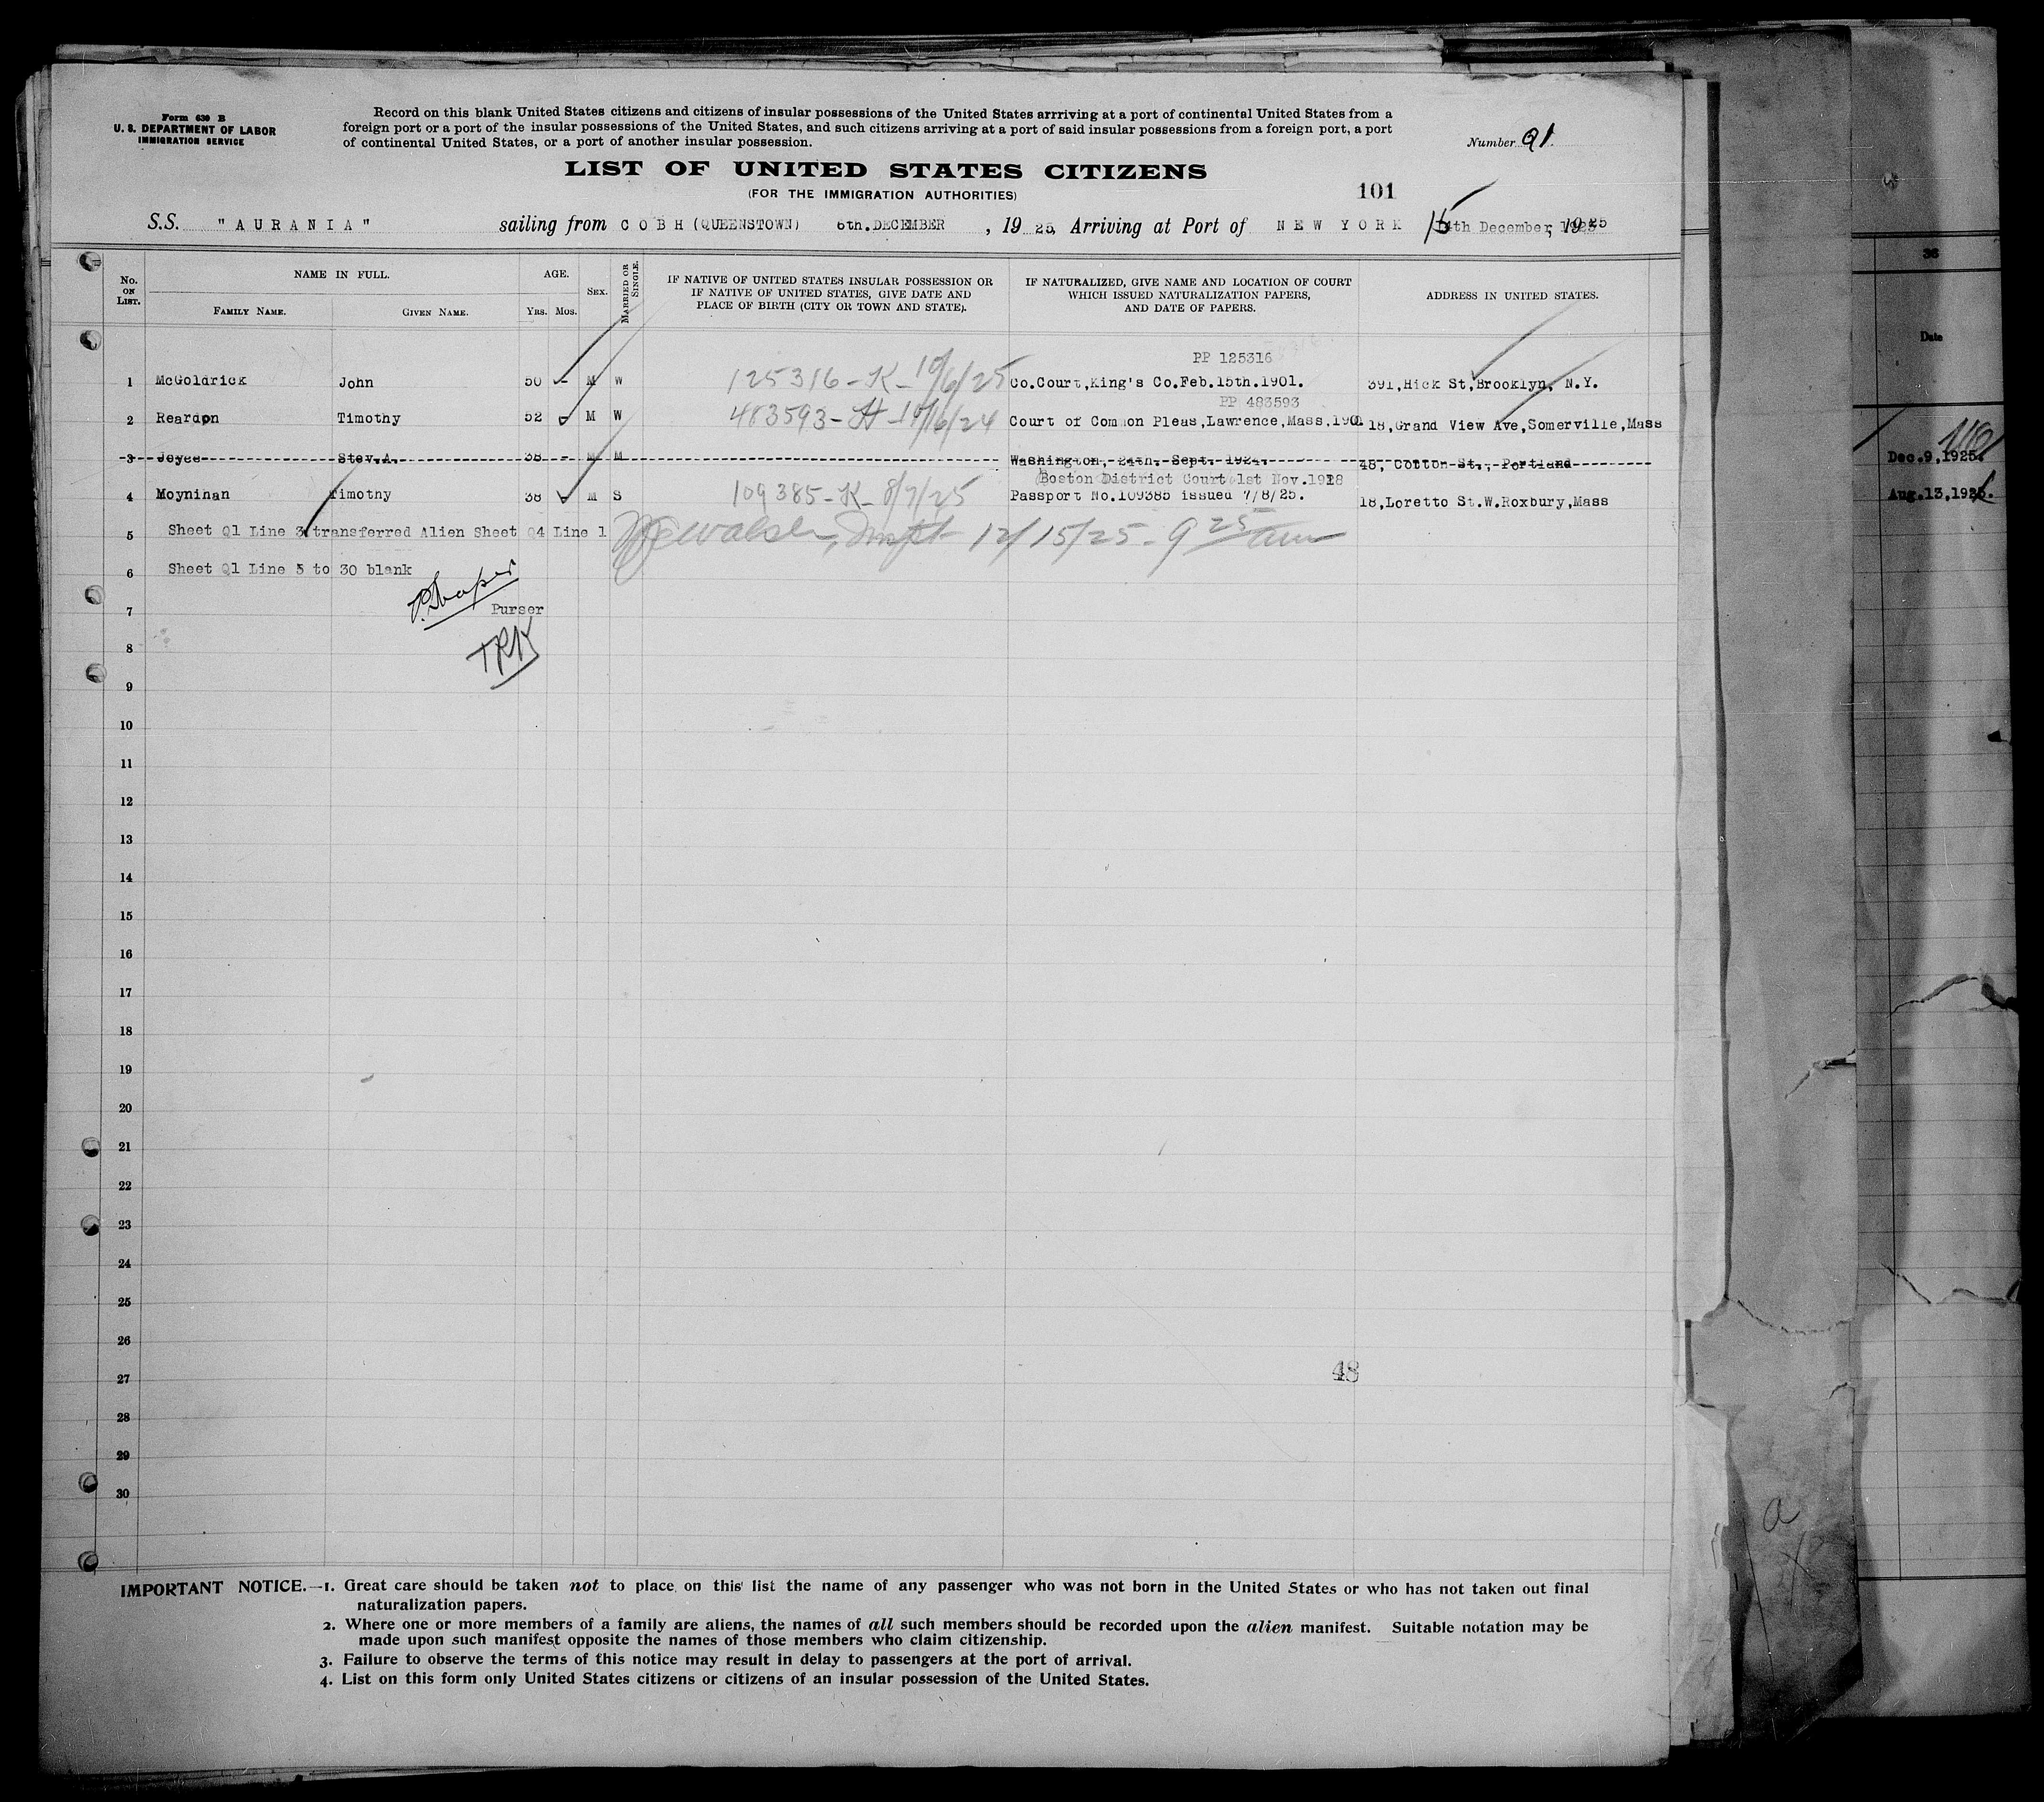 Form 630 B
U. S. DEPARTMENT OF LABOR
IMMIGRATION SERVICE
Record on this blank United States citizens and citizens of insular possessions of the United States arrriving at a port of continental United States from a
foreign port or a port of the insular possessions of the United States, and such citizens arriving at a port of said insular possessions from a foreign port, a port
of continental United States, or a port of another insular possession.
Number Q1.
LIST OF UNITED STATES CITIZENS
(FOR THE IMMIGRATION AUTHORITIES)
101
S.S. "AURANIA" sailing from COBH (QUEENSTOWN) 6th.DECEMBER, 1925, Arriving at Port of NEW YORK 15 14th December 1925, 1925
No. ON LIST.
NAME IN FULL.
FAMILY NAME.
GIVEN NAME.
AGE.
Yrs. Mos.
SEX.
MARRIED OR SINGLE.
IF NATIVE OF UNITED STATES INSULAR POSSESSION OR
IF NATIVE OF UNITED STATES, GIVE DATE AND
PLACE OF BIRTH (CITY OR TOWN AND STATE).
IF NATURALIZED, GIVE NAME AND LOCATION OF COURT
WHICH ISSUED NATURALIZATION PAPERS,
AND DATE OF PAPERS.
ADDRESS IN UNITED STATES.
36
Date
PP 125316
1 McGoldrick John 50 - M W 125316-K-10/6/25 Co.Court,King's Co.Feb.15th.1901. 391,Hick St,Brooklyn, N.Y.
PP 483593
2 Reardon Timothy 52 M W 483593-H-10/16/24 Court of Common Pleas,Lawrence,Mass,1901 18,Grand View Ave,Somerville,Mass
3 Joyce Stev.A. 38 - M M Washington, 24th. Sept. 1924. 48, Cotton St., Portland
Dec.9,1925.
Boston District Court 1st Nov.1918
4 Moynihan Timothy 38 M S 109385-K-8/7/25 Passport No.109385 issued 7/8/25. 18,Loretto St.W.Roxbury,Mass
Aug.13,1925.
5 Sheet Q1 Line 3 transferred Alien Sheet Q4 Line 1 12/15/25 - 9 25 am
6 Sheet Q1 Line 5 to 30 blank
7 Purser
8
9
10
11
12
13
14
15
16
17
18
19
20
21
22
23
24
25
26
27
48
28
29
30
IMPORTANT NOTICE.—1. Great care should be taken not to place on this list the name of any passenger who was not born in the United States or who has not taken out final
naturalization papers.
2. Where one or more members of a family are aliens, the names of all such members should be recorded upon the alien manifest. Suitable notation may be
made upon such manifest opposite the names of those members who claim citizenship.
3. Failure to observe the terms of this notice may result in delay to passengers at the port of arrival.
4. List on this form only United States citizens or citizens of an insular possession of the United States.